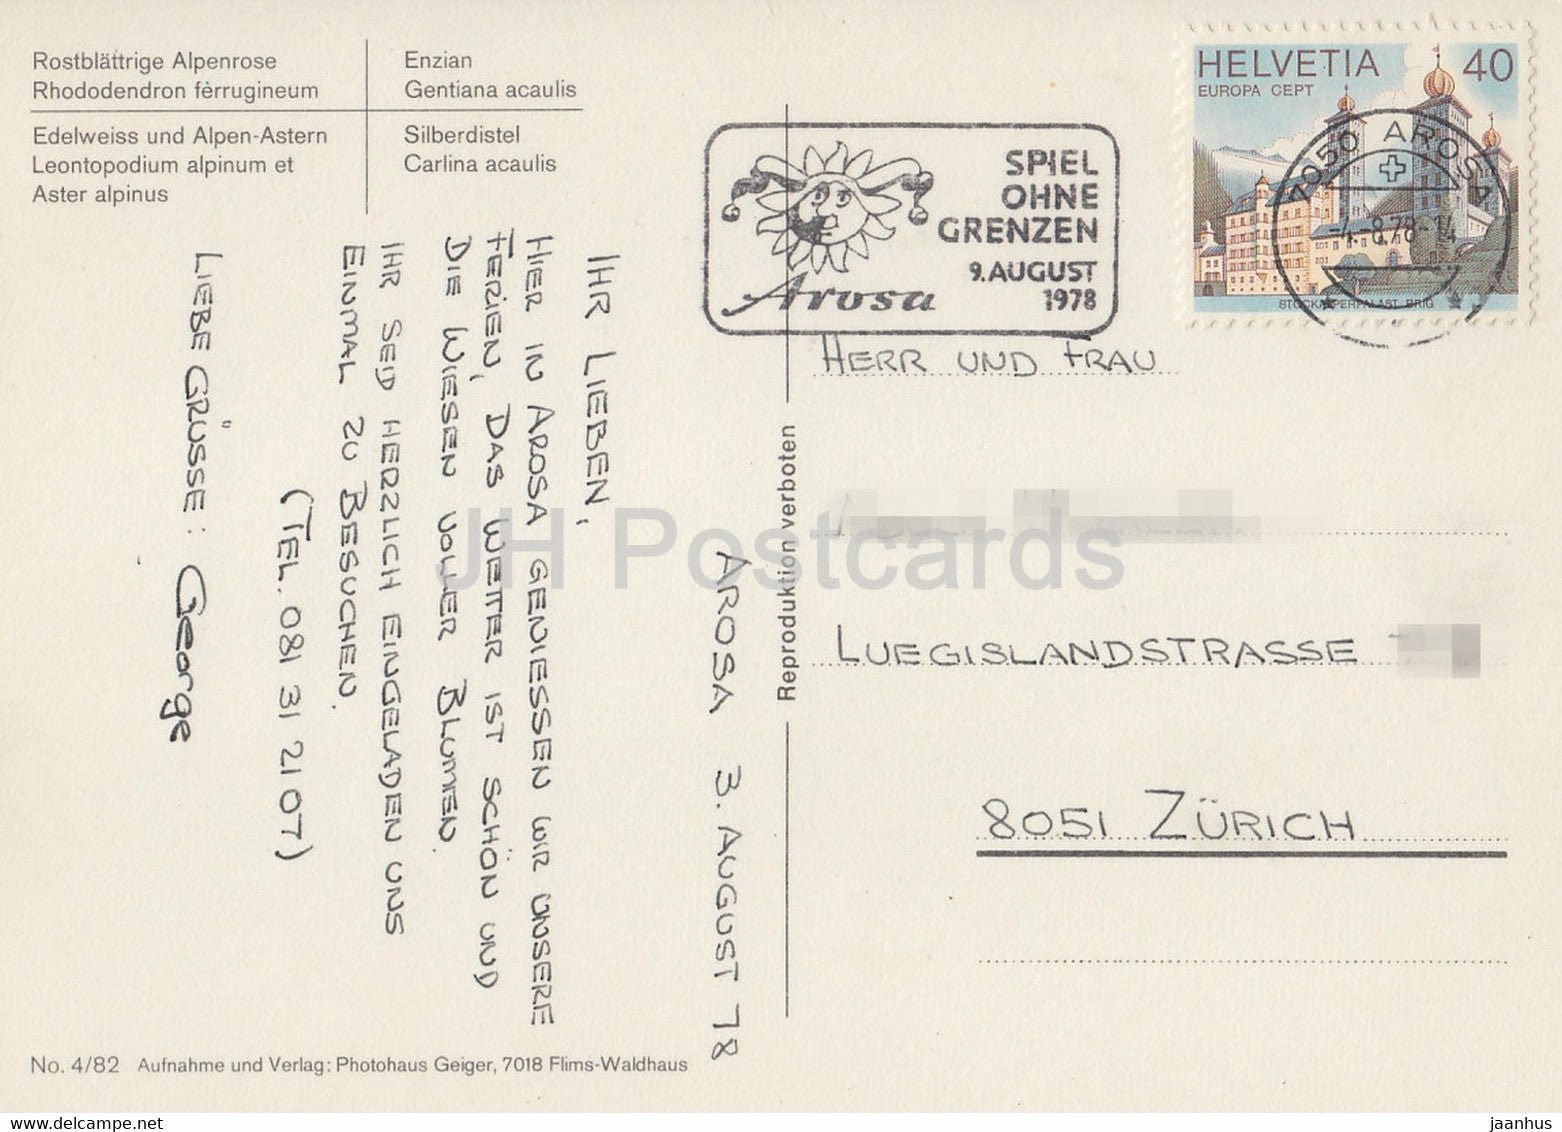 Rostblättrige Alpenrose
Rhododendron ferrugineum
Enzian
Gentiana acaulis
Edelweiss und Alpen-Astern
Leontopodium alpinum et
Aster alpinus
Silberdistel
Carlina acaulis
SPIEL
OHNE
GRENZEN
9. AUGUST
1978
Arosa
HELVETIA 40
EUROPA CEPT
STOCKALPERPALAST BRIG
7050 AROSA
-4.-8.78-14
AROSA 3. AUGUST 78
IHR LIEBEN,
HIER IN AROSA GENIESSEN WIR UNSERE
FERIEN, DAS WETTER IST SCHÖN UND
DIE WIESEN VOLLER BLUMEN.
IHR SEID HERZLICH EINGELADEN UNS
EINMAL ZU BESUCHEN.
(TEL. 081 31 21 07)
LIEBE GRÜSSE: George
Reproduktion verboten
HERR UND FRAU
LUEGISLANDSTRASSE
8051 ZÜRICH
No. 4/82 Aufnahme und Verlag: Photohaus Geiger, 7018 Flims-Waldhaus
JH Postcards
www.delcampe.net
jaanhus